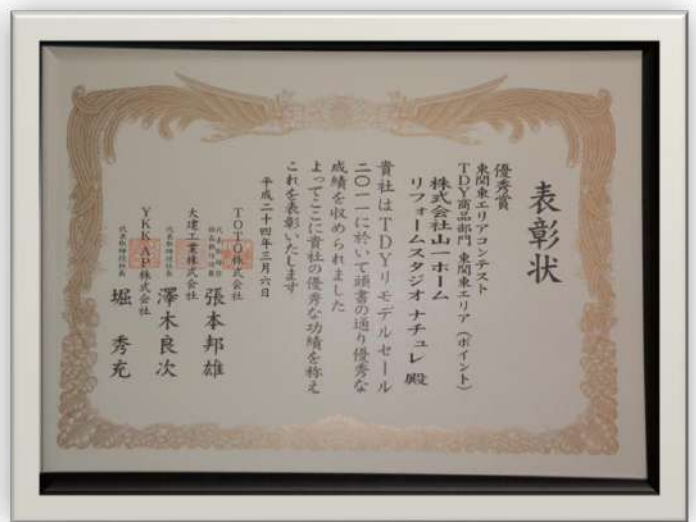 表彰状
優秀賞
東関東エリアコンテスト
TDY商品部門 東関東エリア(ポイント)
株式会社山一ホーム
リフォームスタジオ ナチュレ 殿
貴社はTDYリモデルセール
二〇一一に於いて頭書の通り優秀な
成績を収められました
よってここに貴社の優秀な功績を称え
これを表彰いたします
平成二十四年三月六日
TOTO株式会社
張本邦雄
大建工業株式会社
代表取締役社長
澤木良次
YKK AP株式会社
代表取締役社長
堀 秀充